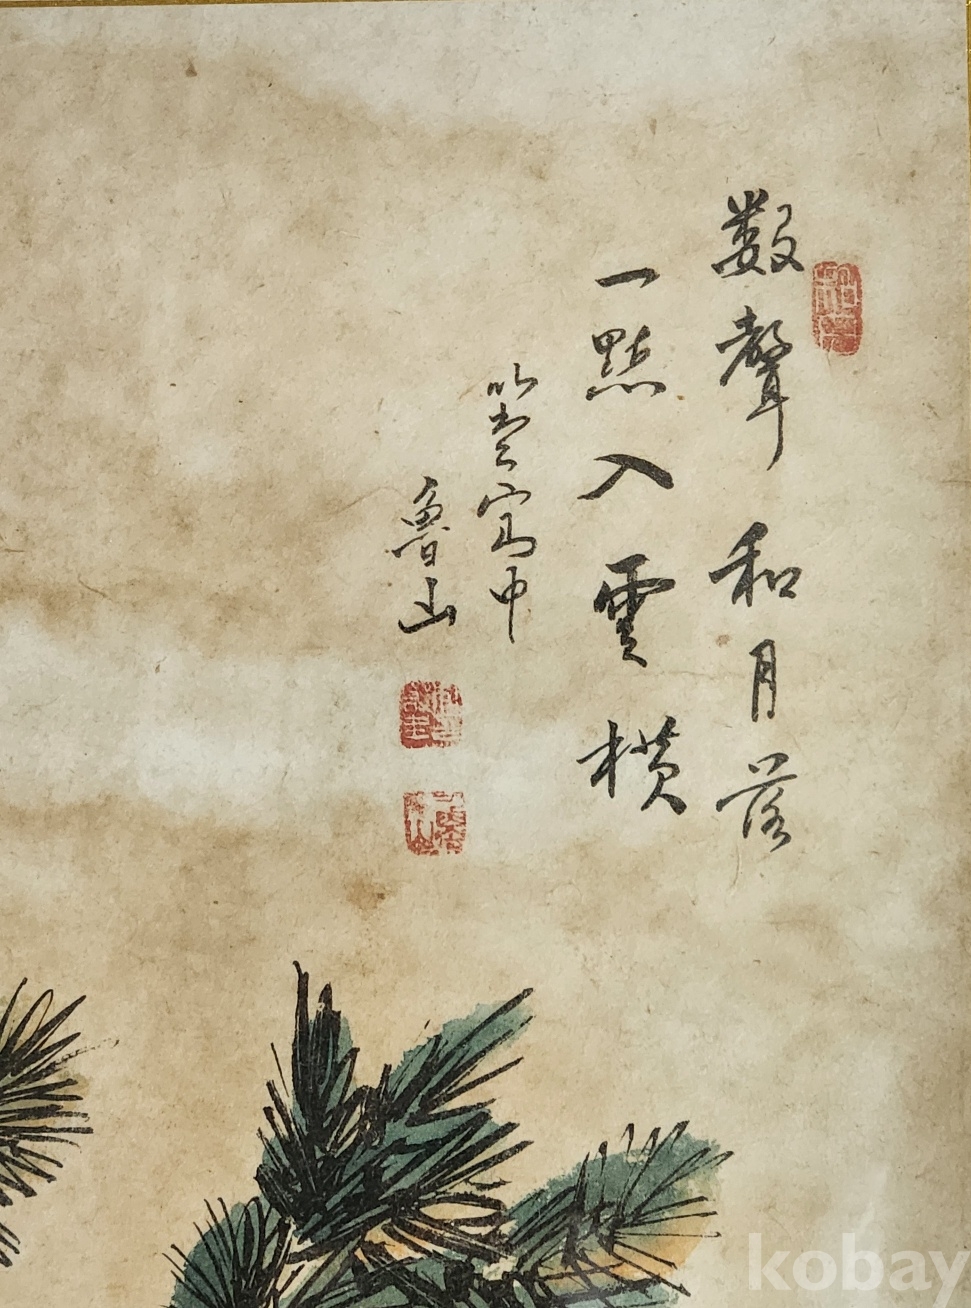 數聲和月落
一點入雲橫
堂寫中
魯山
kobay